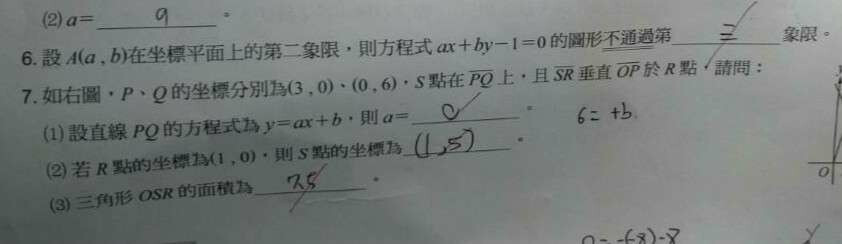 (2) a= 9 。
6. 設 A(a , b)在坐標平面上的第二象限,則方程式 ax+by−1=0 的圖形不通過第 三 象限。
7. 如右圖,P、Q 的坐標分別為(3 , 0)、(0 , 6),S 點在 PQ 上,且 SR 垂直 OP 於 R 點,請問:
(1) 設直線 PQ 的方程式為 y=ax+b,則 a= 0 。 6= +b
(2) 若 R 點的坐標為(1 , 0),則 S 點的坐標為 (1,5) 。
(3) 三角形 OSR 的面積為 7.5 。
O
0=-(-8)-8